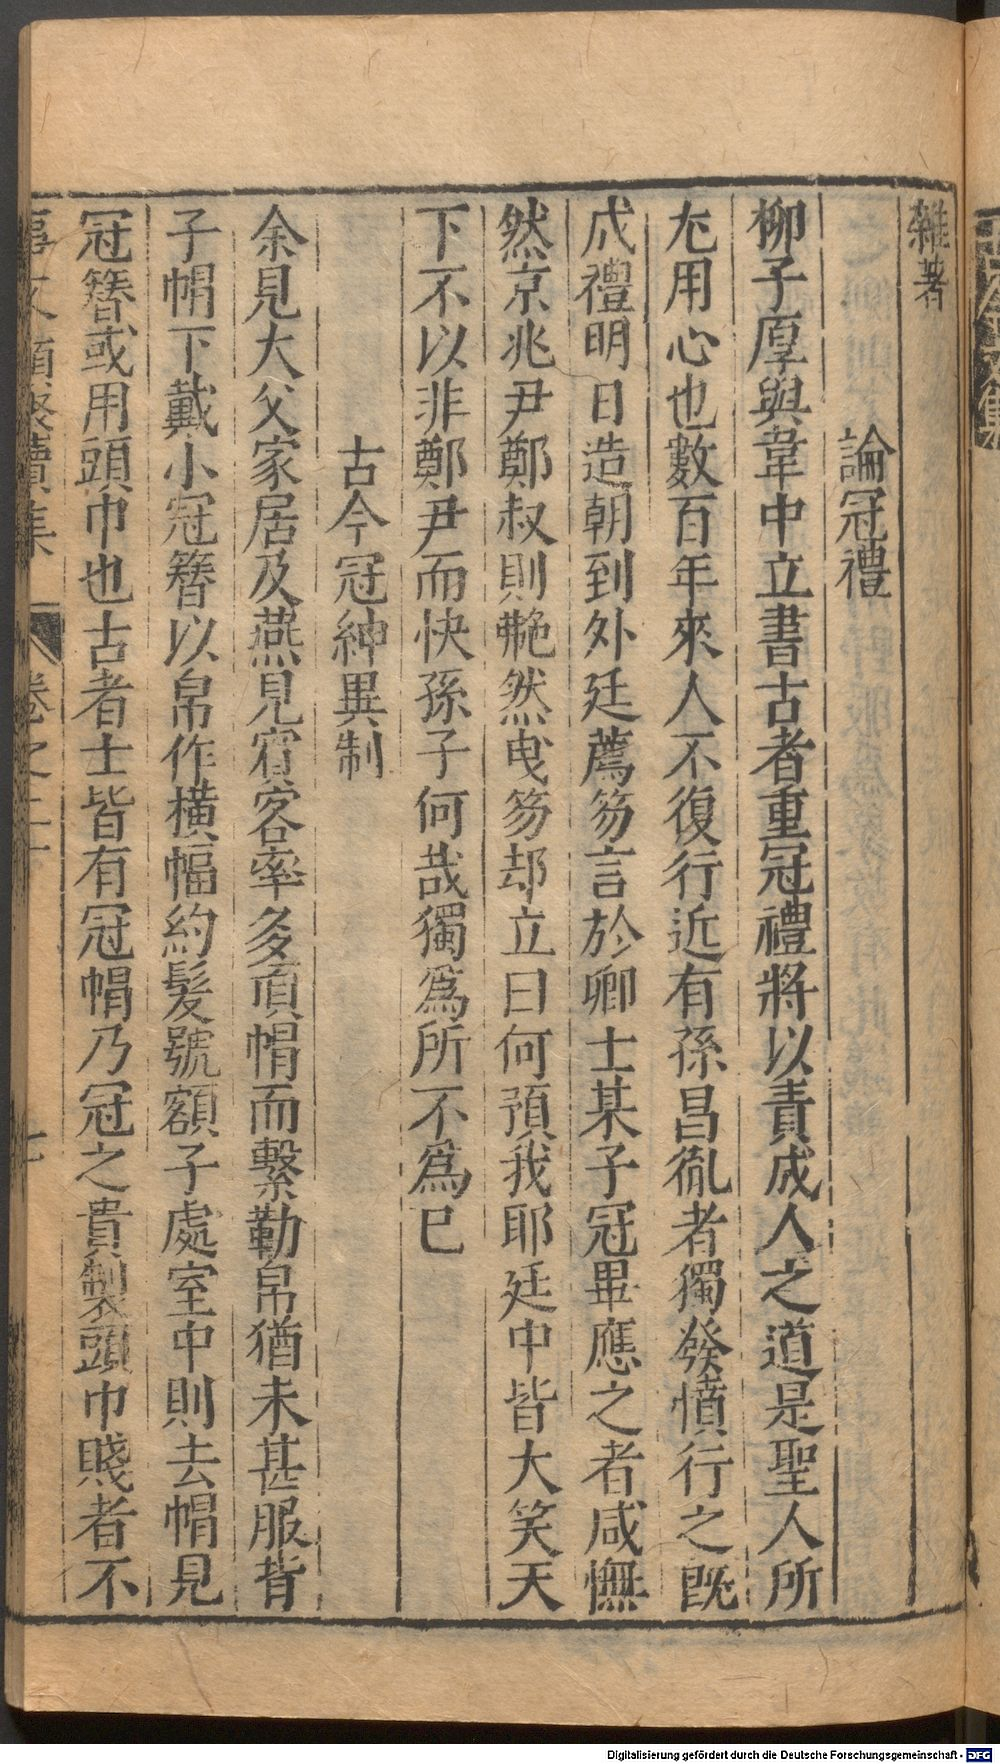 雜著
論冠禮
柳子厚與韋中立書古者重冠禮將以責成人之道是聖人所
尤用心也數百年來人不復行近有孫昌胤者獨發憤行之旣
成禮明日造朝到外廷薦笏言於卿士某子冠畢應之者咸憮
然京兆尹鄭叔則艴然曳笏却立曰何預我耶廷中皆大笑天
下不以非鄭尹而快孫子何哉獨爲所不爲已
古今冠紳異制
余見大父家居及燕見賔客率多頂帽而繫勒帛猶未甚服背
子帽下戴小冠簪以帛作橫幅約髮號額子處室中則去帽見
冠簪或用頭巾也古者士皆有冠帽乃冠之貴製頭巾賤者不
事文類聚續集
卷之二十
七
Digitalisierung gefördert durch die Deutsche Forschungsgemeinschaft - DFG